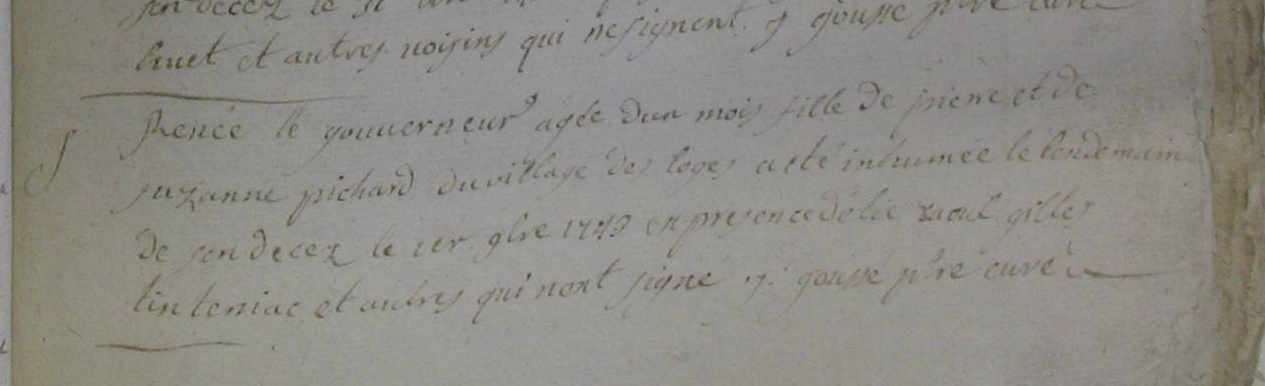 son decez le 31
huet et autres voisins qui ne signent. j gousse ptre curé
S Renée le gouverneur agée dun mois fille de pierre et de
suzanne pichard du village des loges a eté inhumée le lendemain
de son decez le 1er 9bre 1749 en presence délie raoul gilles
tinteniac et autres qui nont signé j. goussé ptre curé